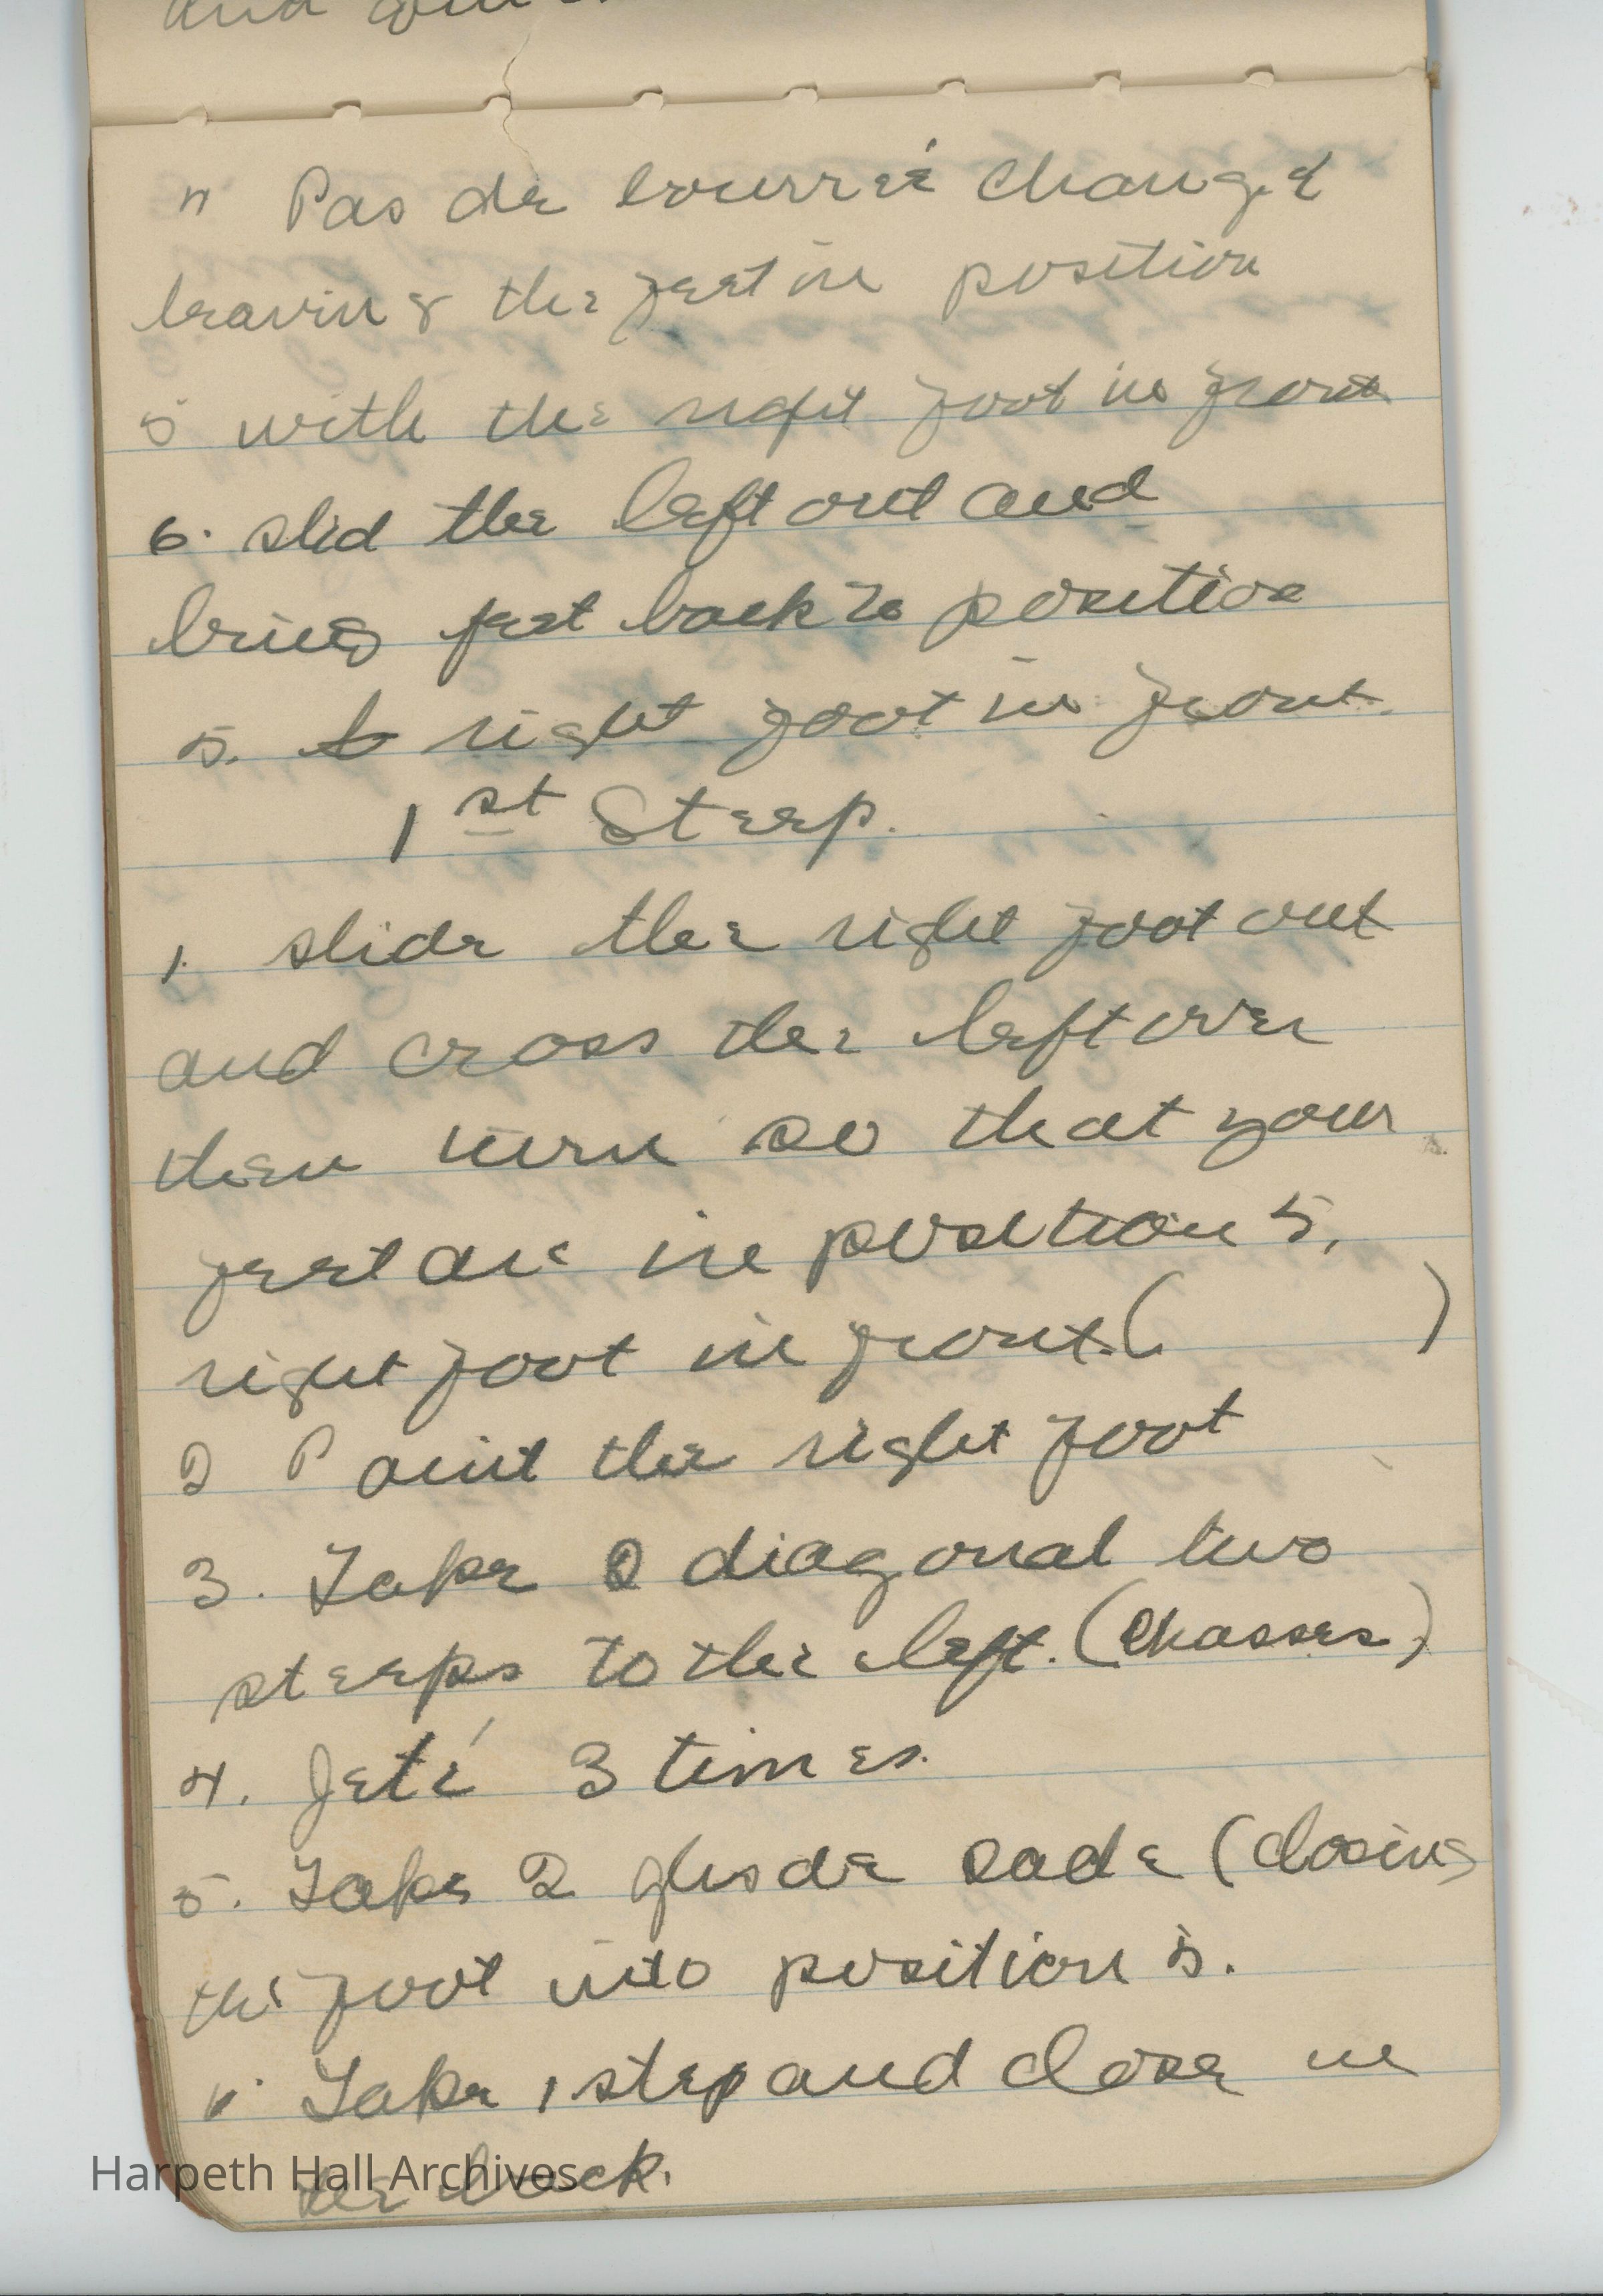 and
" Pas de bourreé changé
leaving the feet in position
5 with the right foot in front
6. slid the left out and
bring feet back to position
5. right foot in front.
1st Steep.
1. slide the right foot out
and cross the left over
then turn so that your
feet are in position 5,
right foot in front. ( )
2 Point the right foot
3. Take 2 diagonal two
steeps to the left. (Chasses)
4. Jeté 3 times.
5. Take 2 (closing
the foot into position 5.
" Take 1 step and close in
the back.
Harpeth Hall Archives